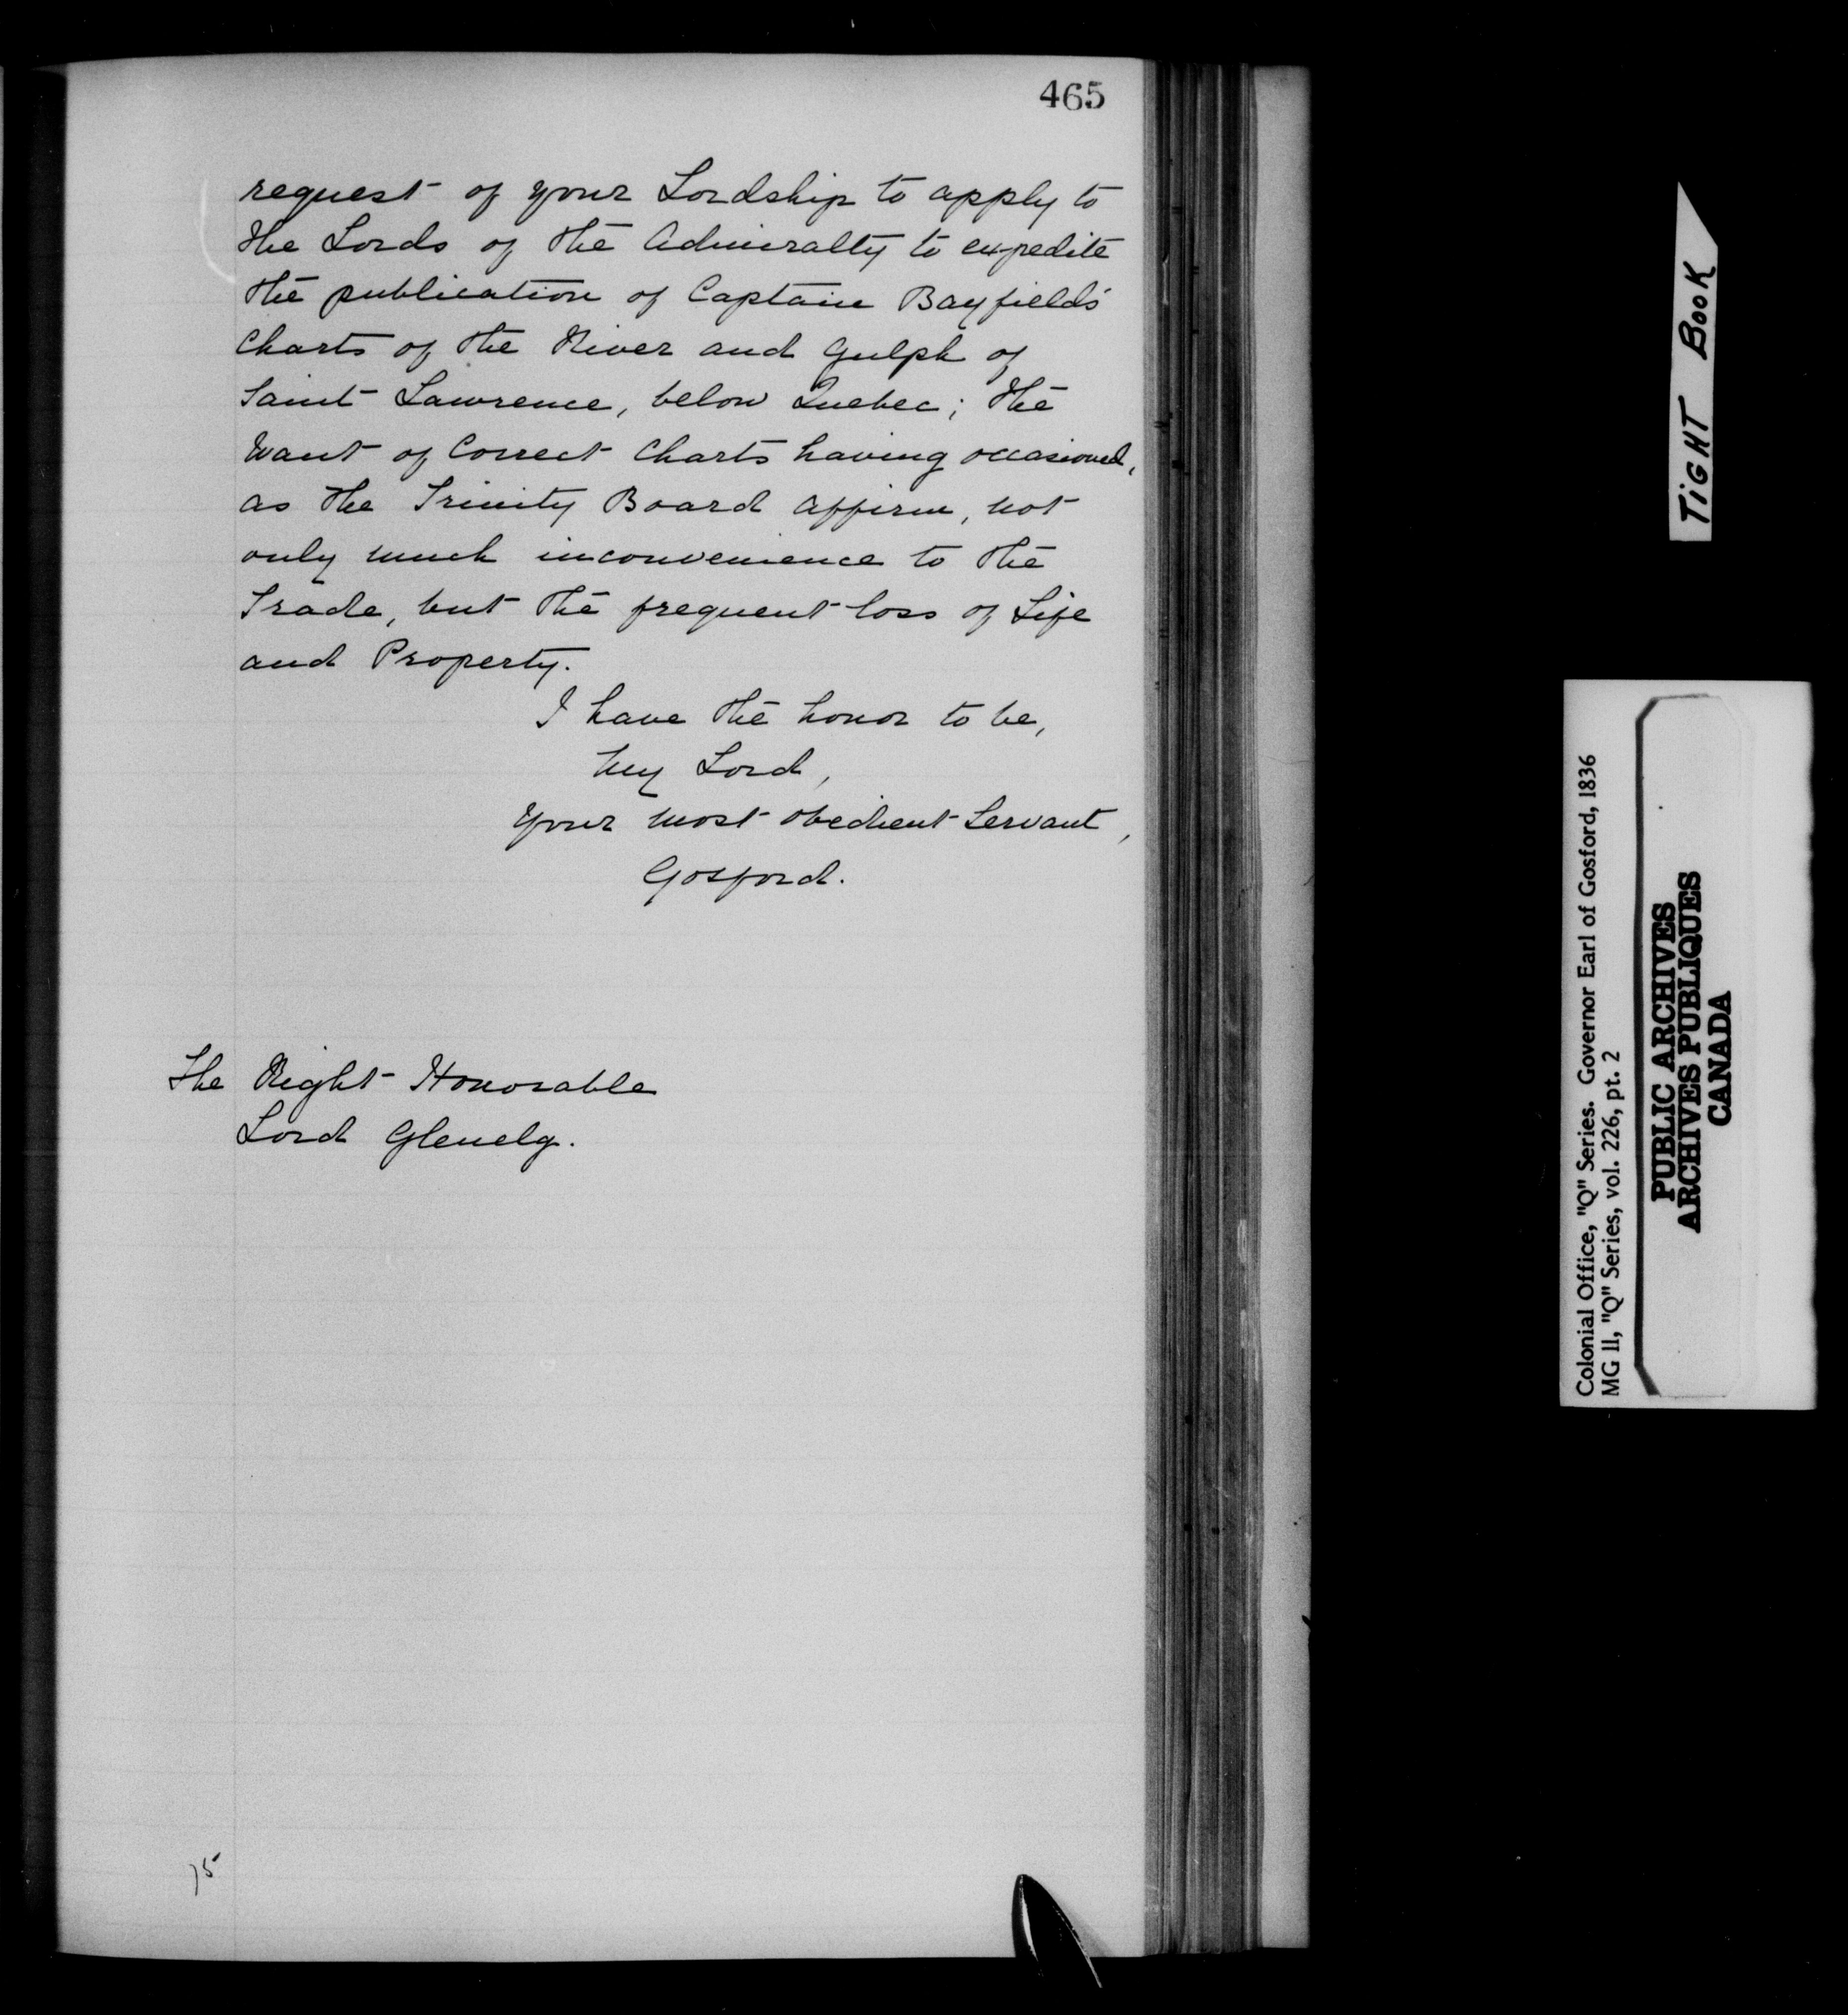 465
request of your Lordship to apply to
the Lords of the Admiralty to expedite
the publication of Captain Bayfield's
Charts of the River and Gulph of
Saint Lawrence, below Quebec; the
want of Correct Charts having occasioned,
as the Trinity Board affirm, not
only much inconvenience to the
Trade, but the frequent loss of Life
and Property.
I have the honor to be,
My Lord,
Your most obedient Servant,
Gosford.
The Right Honorable
Lord Glenelg.
15
TIGHT BOOK
Colonial Office, "Q" Series. Governor Earl of Gosford, 1836
MG 11, "Q" Series, vol. 226, pt. 2
PUBLIC ARCHIVES
ARCHIVES PUBLIQUES
CANADA